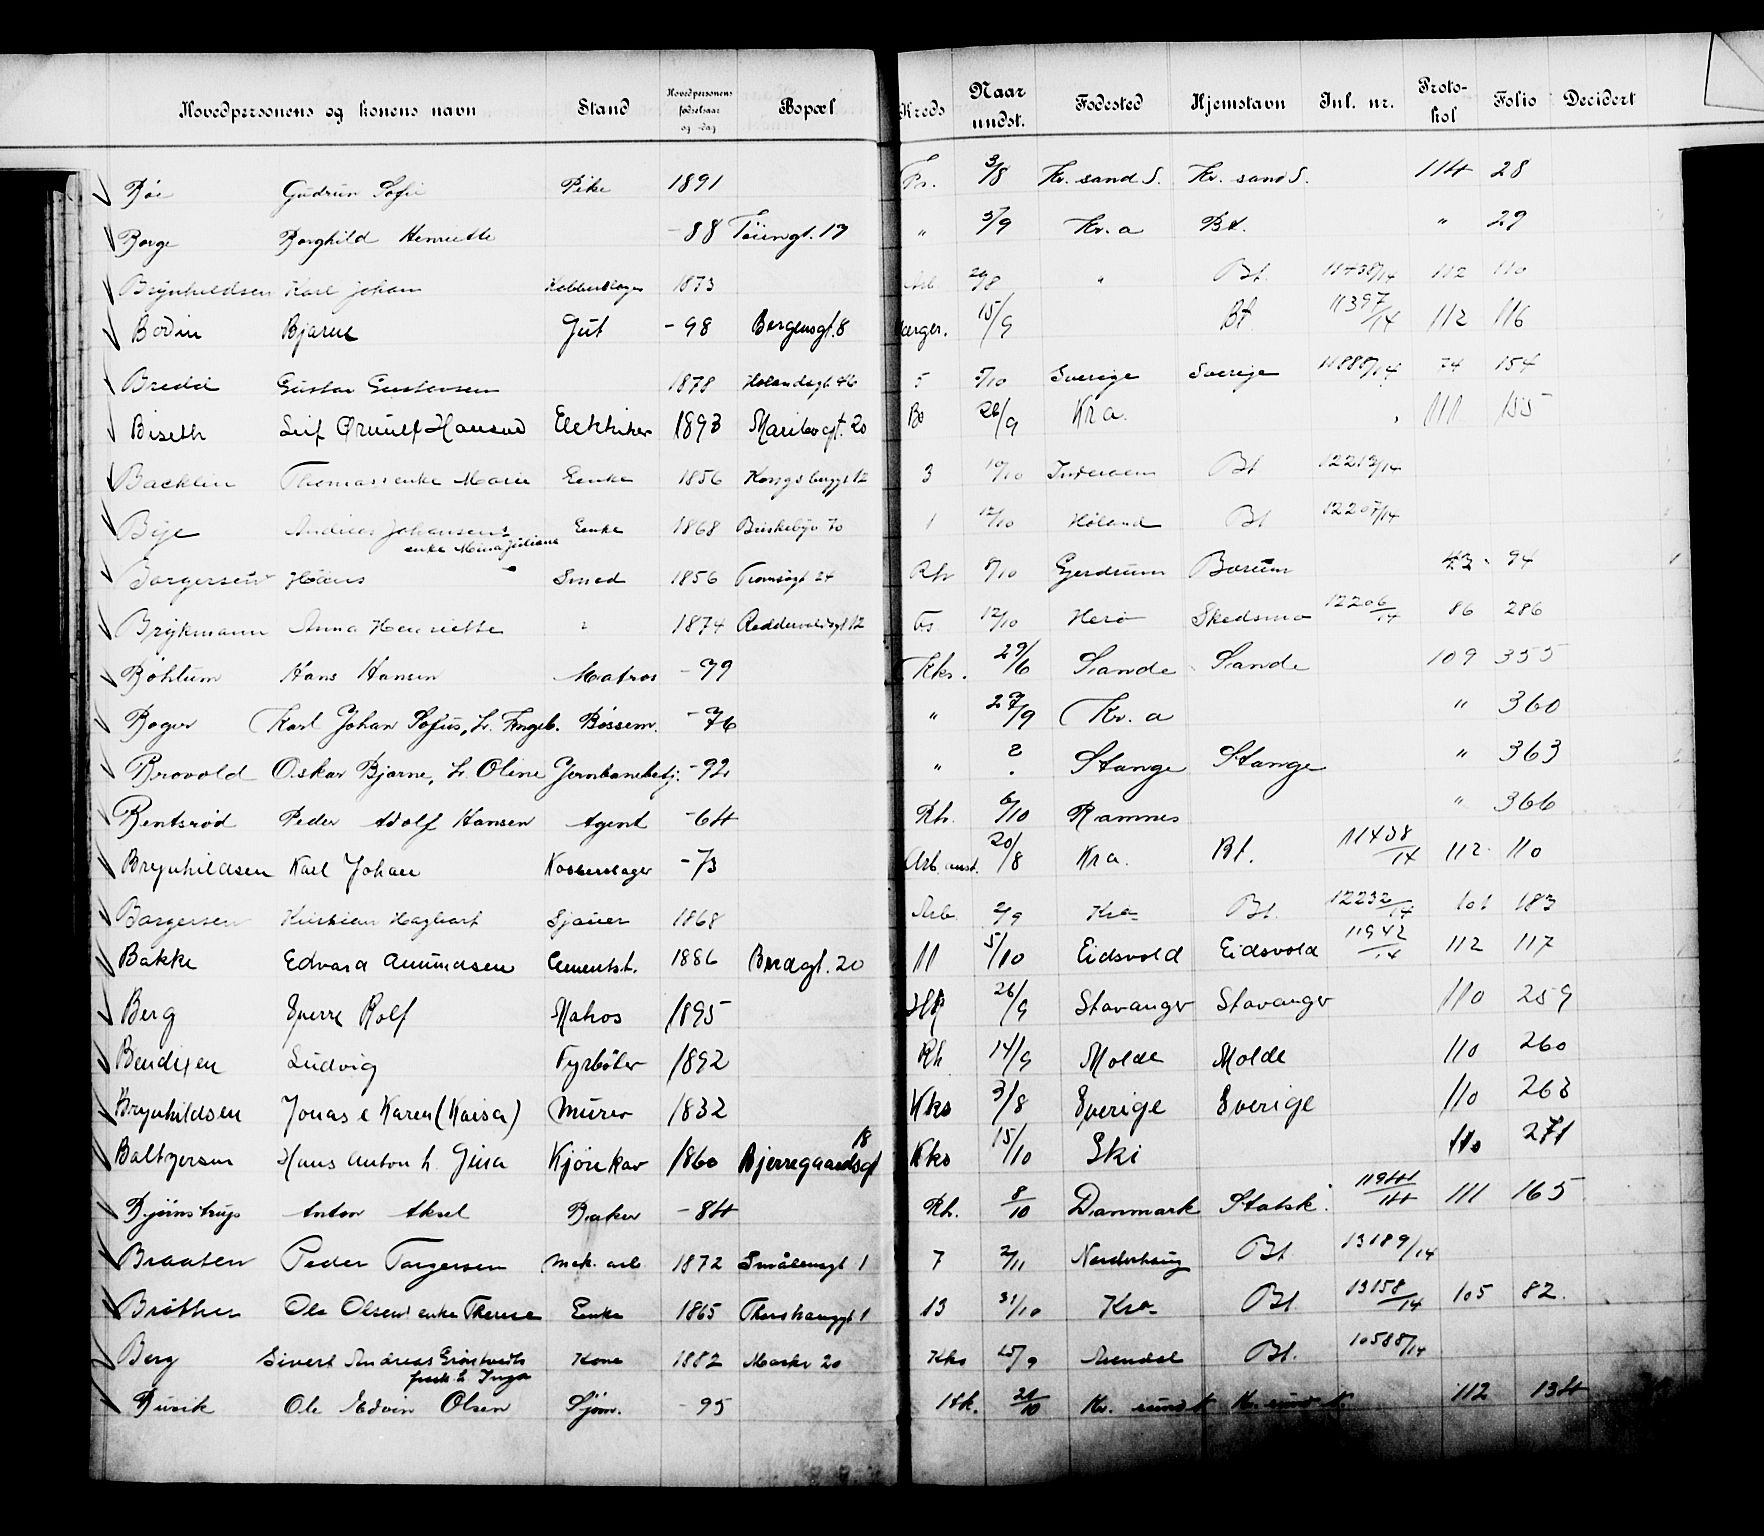 Hovedpersonens og konens navn Stand Hovedpersonens fødselsaar og -dag Bopæl Kreds Naar undst. Fødested Hjemstavn Inl. nr. Protokol Folio Decidert
Bøe Gudrun Sofie Pike 1891 Fs. 3/8 Kr. sand S. Kr. sand S. 114 28
Borge Borghild Henriette -88 Töiengt. 19 " 3/9 Kr. a Bt. " 29
Brynhildsen Karl Johan Kobberslager 1873 Arb. 20/8 " Bt. 11438/14 112 110
Bodin Bjarne Gut -98 Bergensgt. 8 15/9 Bt. 11397/14 112 116
Bredie Gustav Gustavsen 1878 46 5 5/10 Sverige Sverige 11888/14 74 154
Biseth Leif Ørnulf Hansen Elektriker 1893 Maribogt. 20 26/9 Kra. 111 155
Backlin Thomas enke Marie Enke 1856 12 3 10/10 Bt 12213/14
Bye Andreas Johansens Enke 1868 Briskebyv 70 1 12/10 Høland Bt 12205/14
enke Mina Juliane
Borgersen Hans Smed 1856 Tromsøgt 24 Rh 8/10 Gjerdrum Bærum 43 94
Brykmann Anna Henriette 1874 12 Fs. 12/10 Herø Skedsmo 12206/14 86 286
Böhlum Hans Hansen Matros -79 Kks. 29/6 Sande Sande 109 355
Boger Karl Johan Sofus, h. Engeb. Bössem. -76 " 27/9 Kr. a " 360
Brovold Oskar Bjarne, h. Oline Jernbanebetj. -92 " ? Stange Stange " 363
Bentsrød Peder Adolf Hansen Agent -64 Rh. 6/10 Ramnes " 366
Brynhildsen Karl Johan Kobberslager -73 Arb. anst. 20/8 Kra. Bt. 11438/14 112 110
Borgersen Kristian Hagbart Sjauer 1868 Arb. 2/9 Kra Bt. 12232/14 101 183
Bakke Edvard Amundsen Cementst. 1886 20 11 5/10 Eidsvold Eidsvold 11942/14 112 117
Berg Sverre Rolf Matros 1895 26/9 Stavanger Stavanger 110 259
Bendixen Ludvig Fyrböter 1892 Rh 14/9 Molde Molde 110 260
Brynhildsen Jonas e Karen (Kaisa) Murer 1832 Kks 3/8 Sverige Sverige 110 263
Baltzersen Hans Anton h. Gina Kjörekar 1860 Bjerregaardsgt 18 Kks 15/10 Ski 110 271
Bjørnstrup Anton Aksel Baker -84 Rh. 8/10 Danmark Statsk. 11941/14 111 165
Braaten Peder Torgersen Mek. arb 1872 Smålensgt 1 7 2/11 Norderhaug Bt 13189/14
Bråthen Ole Olsen enke Therese Enke 1865 1 13 31/10 Kra Bt 13158/14 105 82.
Berg Sivert Andreas Kone 1882 Markv 20 Kks 25/9 Arendal Bt. 10588/14
h. Inga
Busik Ole Edvin Olsen Sjöm. -95 21/10 Kr. sund N Kr. sund N. 112 134